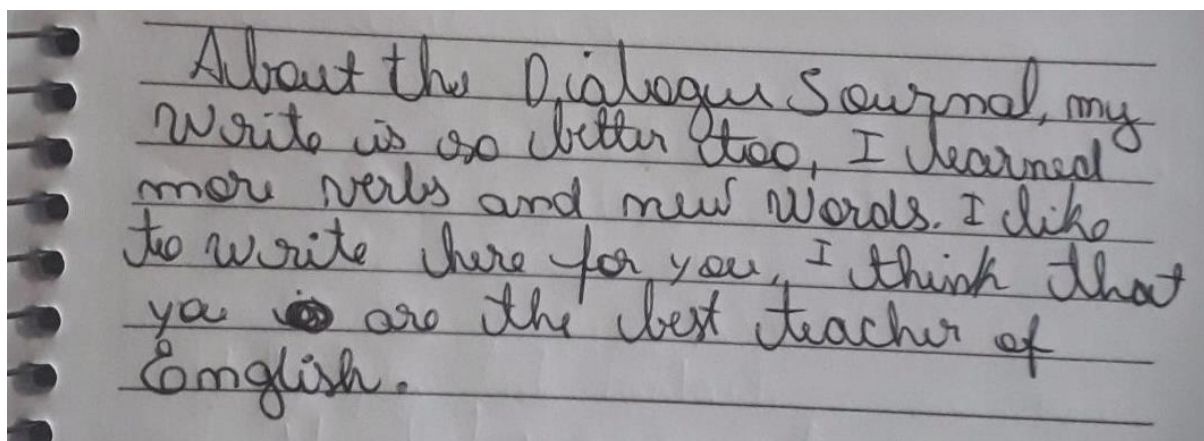 About the Dialogue Journal, my
write is so better too, I learned
more verbs and new words. I like
to write here for you, I think that
you are the best teacher of
English.